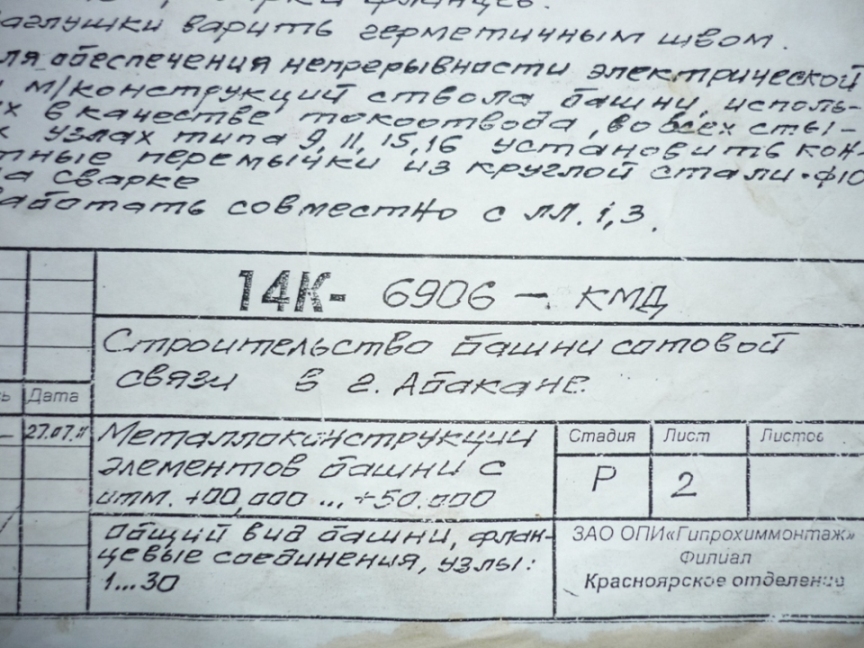 аглушки варить герметичным швом.
ля обеспечения непрерывности электрической
м/конструкций ствола башни, исполь-
х в качестве токоотвода, во всех сты-
х узлах типа 9, 11, 15, 16 установить кон-
тные перемычки из круглой стали ф10
на сварке
работать совместно с лл. 1, 3.
14К- 6906 - КМД
Строительство башни сотовой
связи в г. Абакане.
ь Дата
27.07.11
Металлоконструкции
элементов башни с
отм. +00,000 ... +50.000
Стадия Лист Листов
Р 2
общий вид башни, флан-
цевые соединения, узлы:
1...30
ЗАО ОПИ «Гипрохиммонтаж»
Филиал
Красноярское отделение